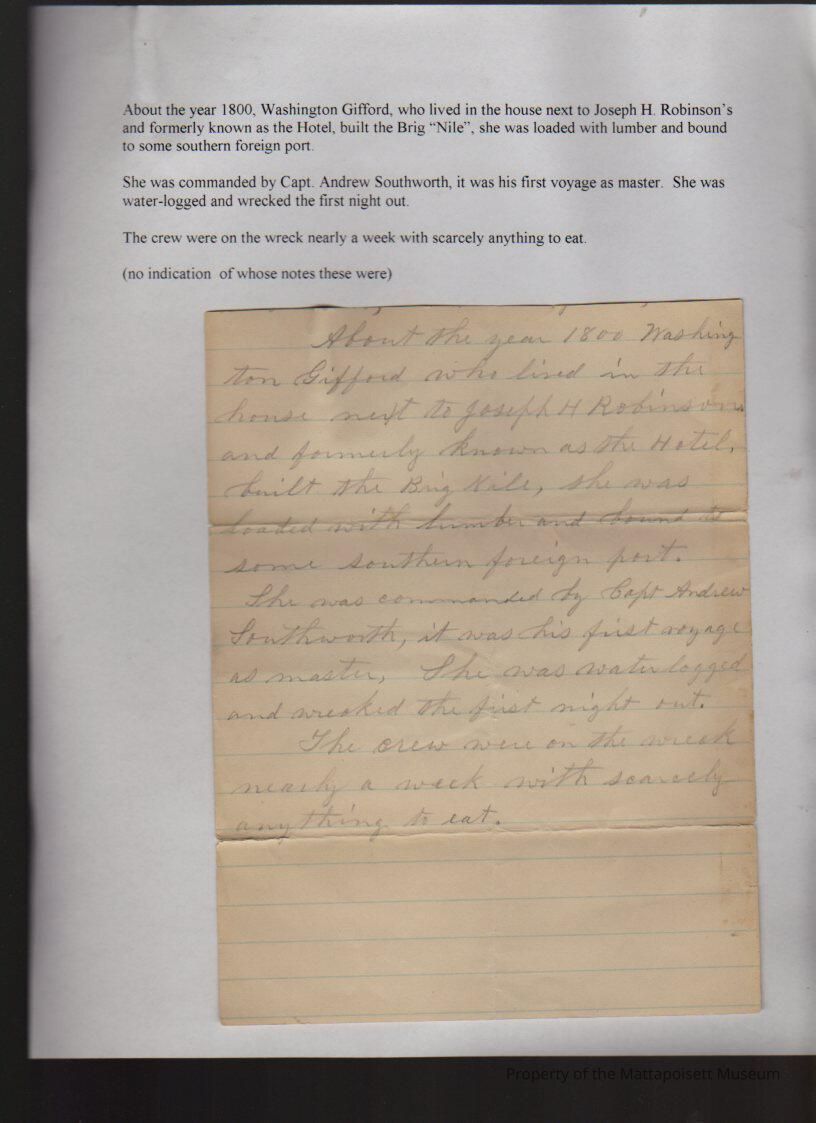 About the year 1800, Washington Gifford, who lived in the house next to Joseph H. Robinson's
and formerly known as the Hotel, built the Brig “Nile”, she was loaded with lumber and bound
to some southern foreign port.
She was commanded by Capt. Andrew Southworth, it was his first voyage as master. She was
water-logged and wrecked the first night out.
The crew were on the wreck nearly a week with scarcely anything to eat.
(no indication of whose notes these were)
About the year 1800 Washing
ton Gifford who lived in the
house next to Joseph H Robinsons
and formerly known as the Hotel,
built the Brig Nile, she was
loaded with lumber and bound to
some southern foreign port.
She was commanded by Capt Andrew
Southworth, it was his first voyage
as master, She was water logged
and wrecked the first night out.
The crew were on the wreck
nearly a week with scarcely
anything to eat.
Property of the Mattapoisett Museum